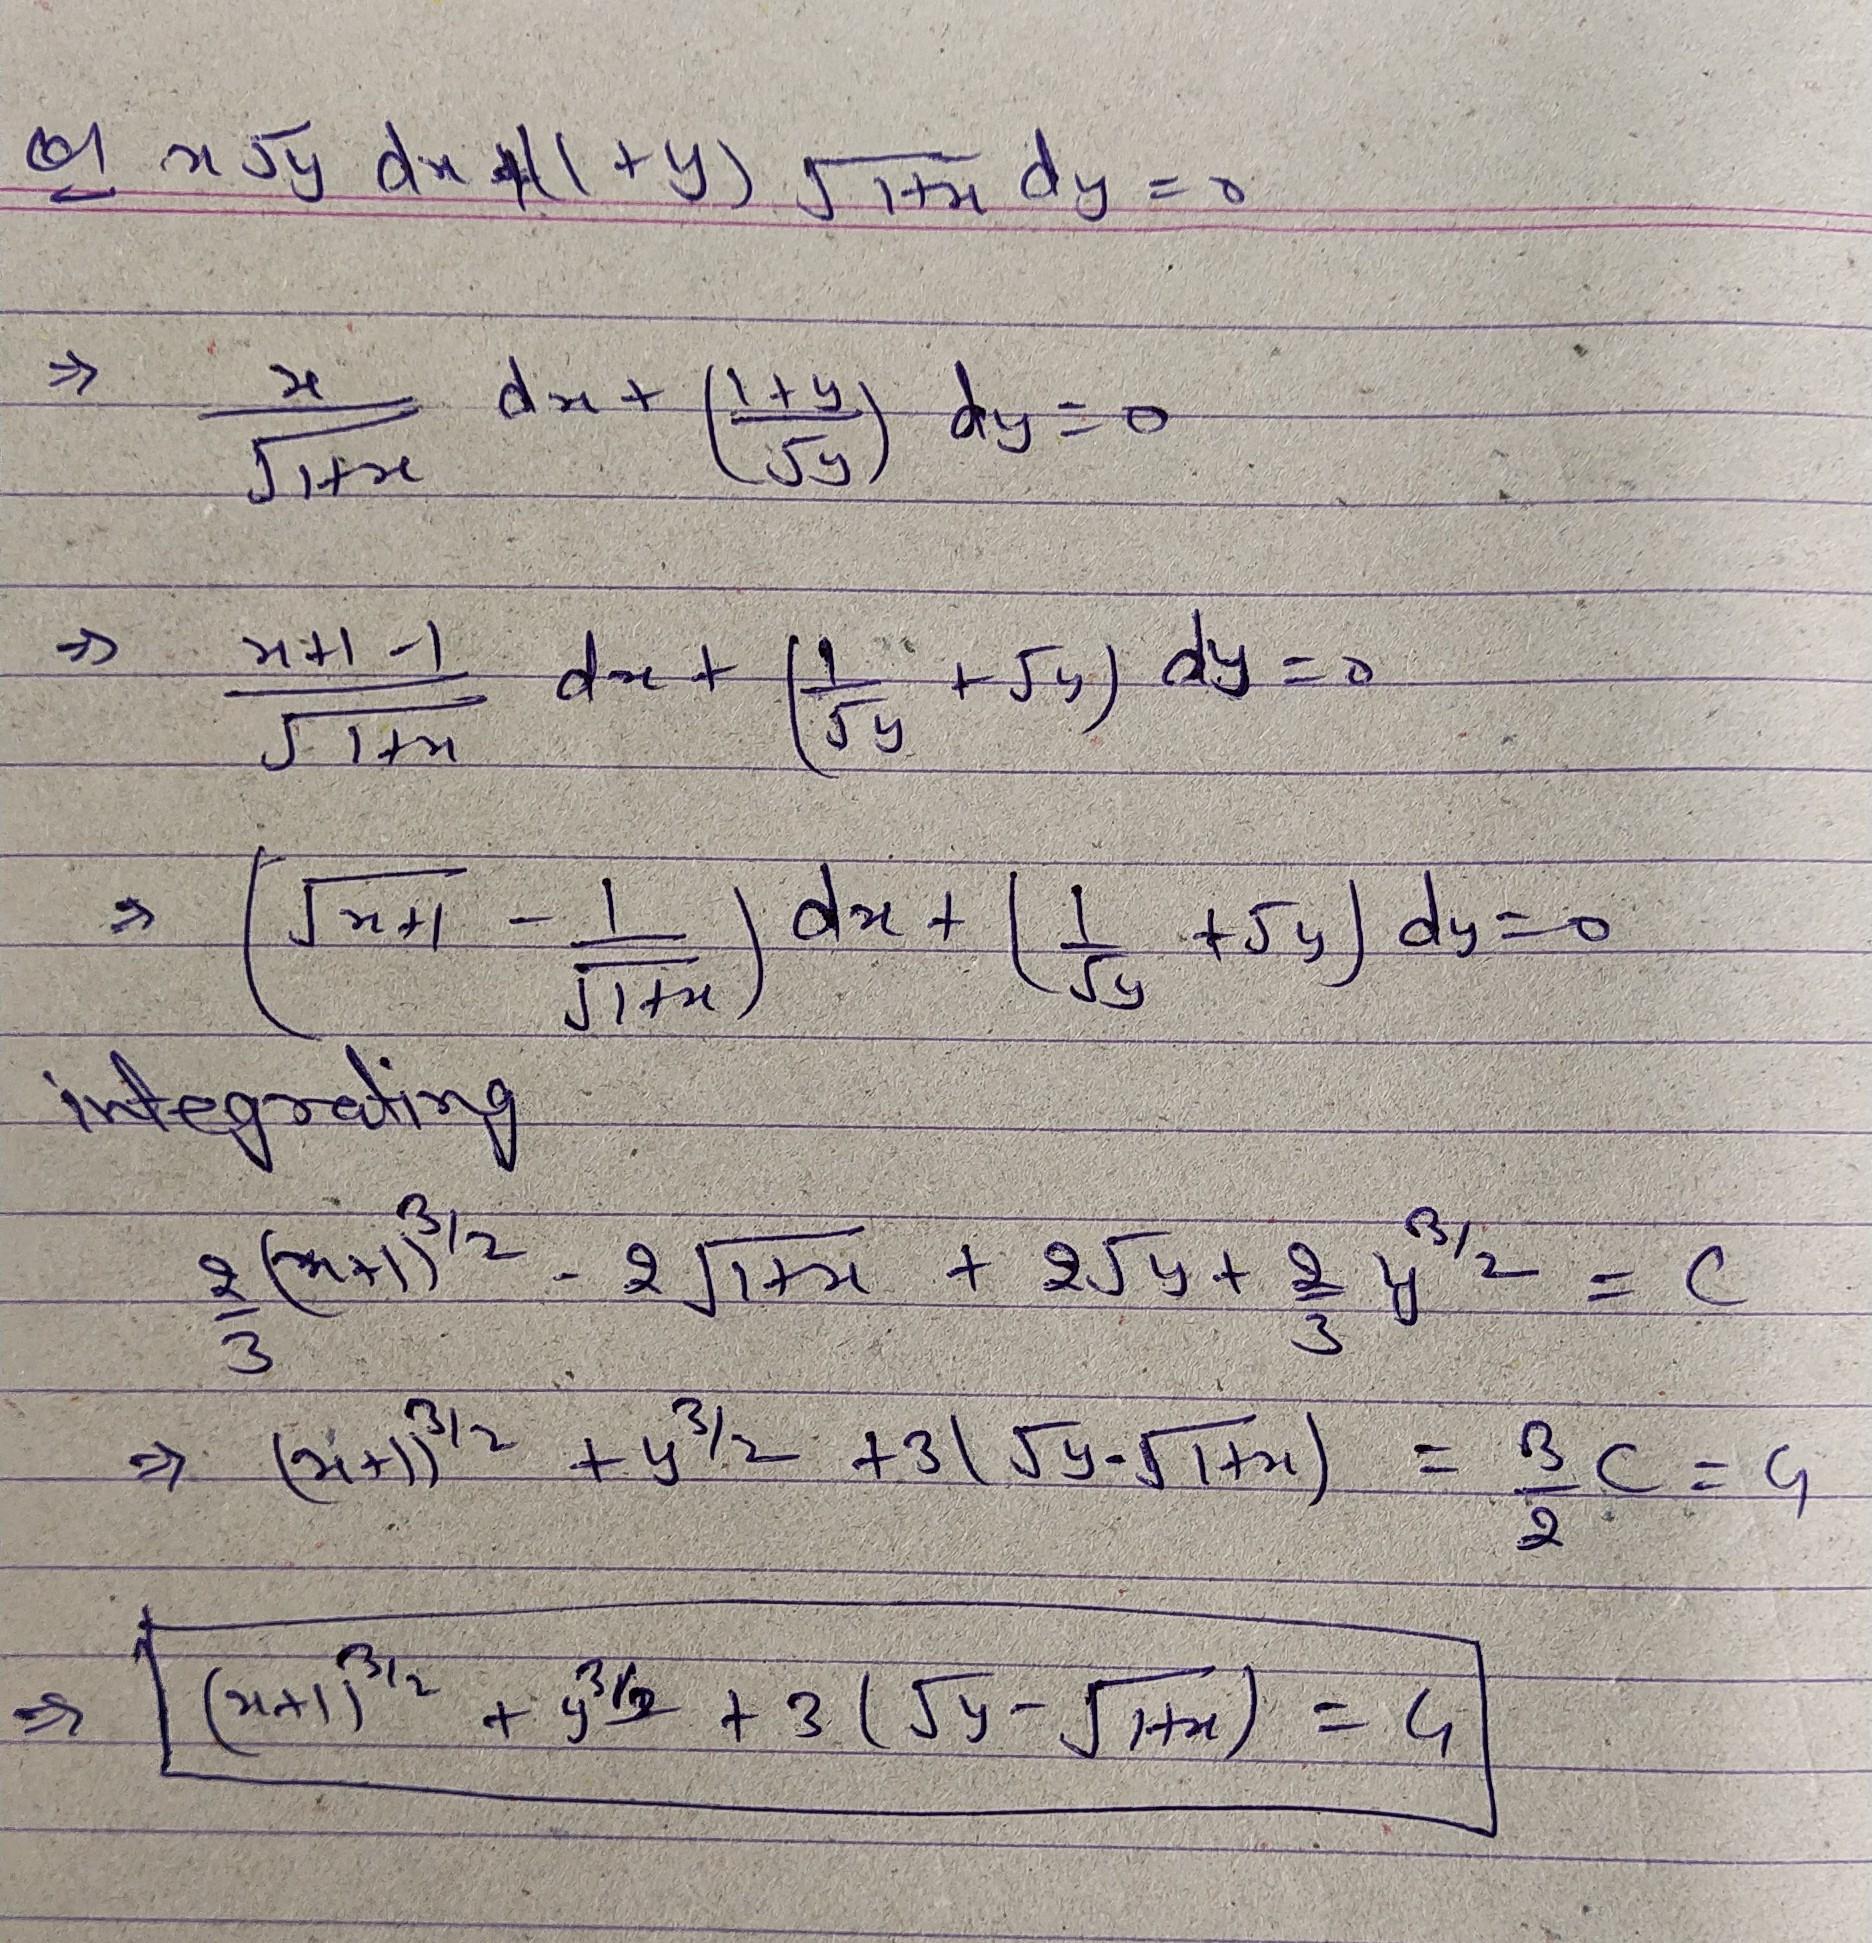 Q1 x√y dx + (1+y) √1+x dy = 0
⇒ x/√1+x dx + (1+y/√y) dy = 0
⇒ x+1-1/√1+x dx + (1/√y + √y) dy = 0
⇒ (√x+1 - 1/√1+x) dx + (1/√y + √y) dy = 0
integrating
2/3 (x+1)^3/2 - 2√1+x + 2√y + 2/3 y^3/2 = C
⇒ (x+1)^3/2 + y^3/2 + 3(√y-√1+x) = 3/2 C = C₁
⇒ (x+1)^3/2 + y^3/2 + 3(√y-√1+x) = C₁